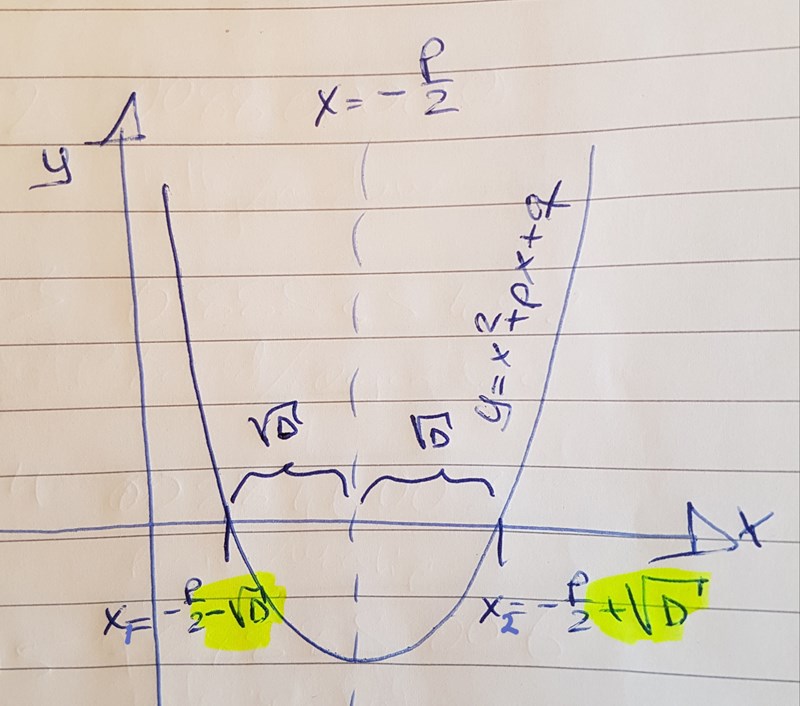 x = -p/2
y
y = x² + px + q
√D
√D
x
x₁ = -p/2 - √D
x₂ = -p/2 + √D